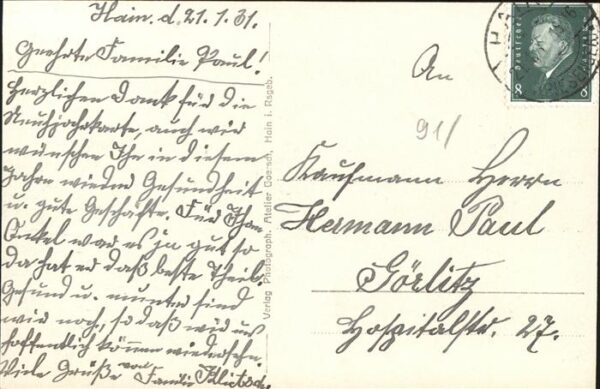 Hain. d. 21.1.31.
Geehrte Familie Paul!
Herzlichen Dank für die
Neuhjahrkarte, auch wir
wünschen Ihr in diesem
Jahre wieder Gesundheit
u. gute Geschäfte. Für Ihren
Onkel war es ja gut so
da hat er daß beste Theil.
Gesund u. munter sind
wir noch, so daß wir uns
hoffentlich können wiedersehn.
Viele Grüße von Familie
Verlag Photograph. Atelier Hain i. Rsgeb.
Deutsches Reich
8 8
An
91/
Kaufmann Herrn
Hermann Paul
Görlitz
Hospitalstr. 27.